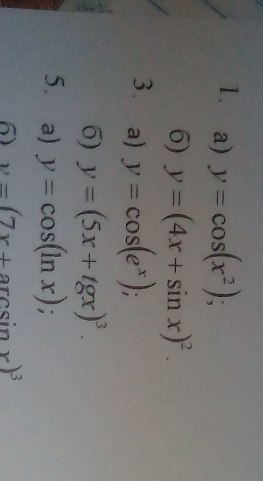 1. а) y = cos(x²);
б) y = (4x + sin x)².
3. а) y = cos(eˣ);
б) y = (5x + tgx)³.
5. а) y = cos(ln x);
б) y = (7x + arcsin x)³